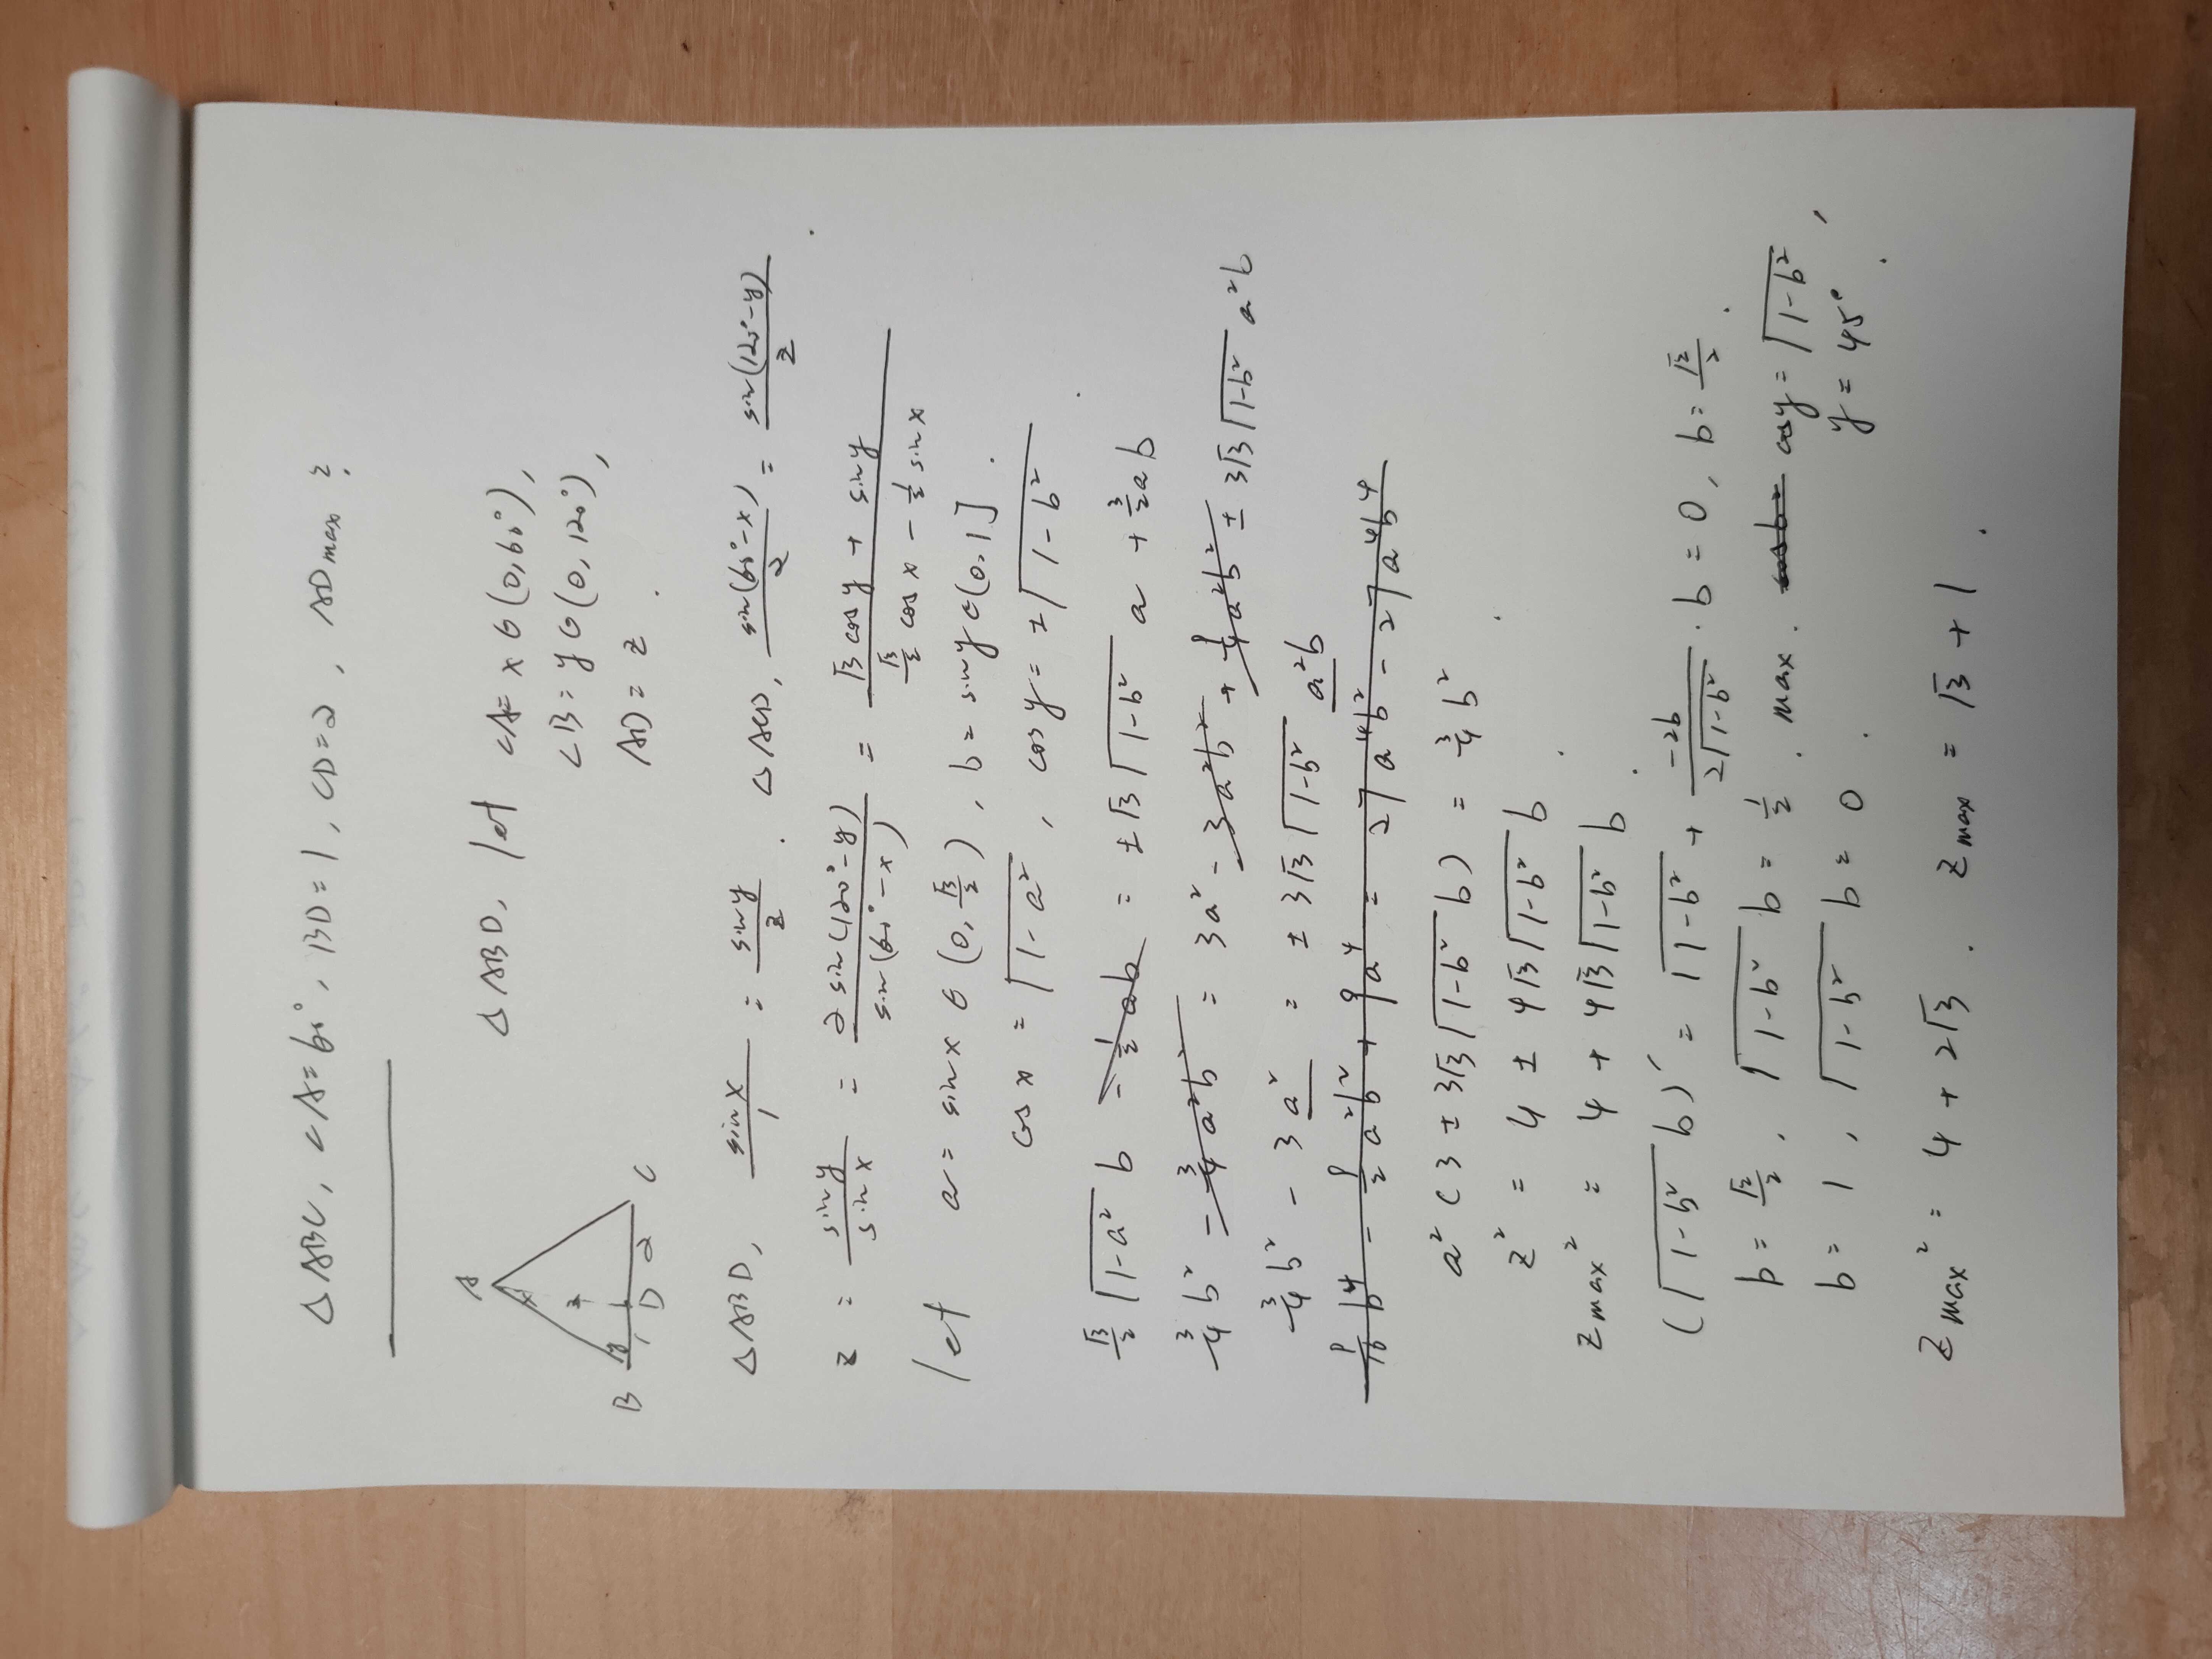 △ABC, ∠A=60°, BD=1, CD=2, AD max ?
A
x
z
B y 1 D 2 C
△ABD, let ∠A= x ∈ (0, 60°),
∠B= y ∈ (0, 120°),
AD = z .
△ABD, sin x / 1 = sin y / z . △ACD, sin(60°-x) / 2 = sin(120°-y) / z .
z = sin y / sin x = 2 sin(120°-y) / sin(60°-x) = (√3 cos y + sin y) / (√3/2 cos x - 1/2 sin x)
let a = sin x ∈ (0, √3/2), b = sin y ∈ (0, 1] .
cos x = √(1-a²), cos y = ±√(1-b²) .
√3/2 √(1-a²) b - 1/2 ab = ±√3 √(1-b²) a + 3/2 ab
3/4 b² - 3/4 a²b² = 3a² - 3a²b² + 9/4 a²b² ± 3√3 √(1-b²) a²b
3/4 b² - 3a² = ± 3√3 √(1-b²) a²b
9/16 b⁴ - 9/2 a²b² + 9a⁴ = 27a⁴b² - 27a⁴b⁴
a² (3 ± 3√3 √(1-b²) b) = 3/4 b² .
z² = 4 ± 4√3 √(1-b²) b .
z max² = 4 + 4√3 √(1-b²) b .
(√(1-b²) b)′ = √(1-b²) + -2b / 2√(1-b²) · b = 0, b = √2/2 .
b = √2/2, √(1-b²) b = 1/2 . max . cos b = cos y = √(1-b²),
b = 1, √(1-b²) b = 0 . y = 45° .
z max² = 4 + 2√3 . z max = √3 + 1 .